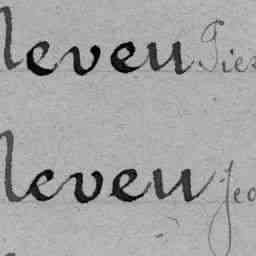 leveu Pie
leveu Jea